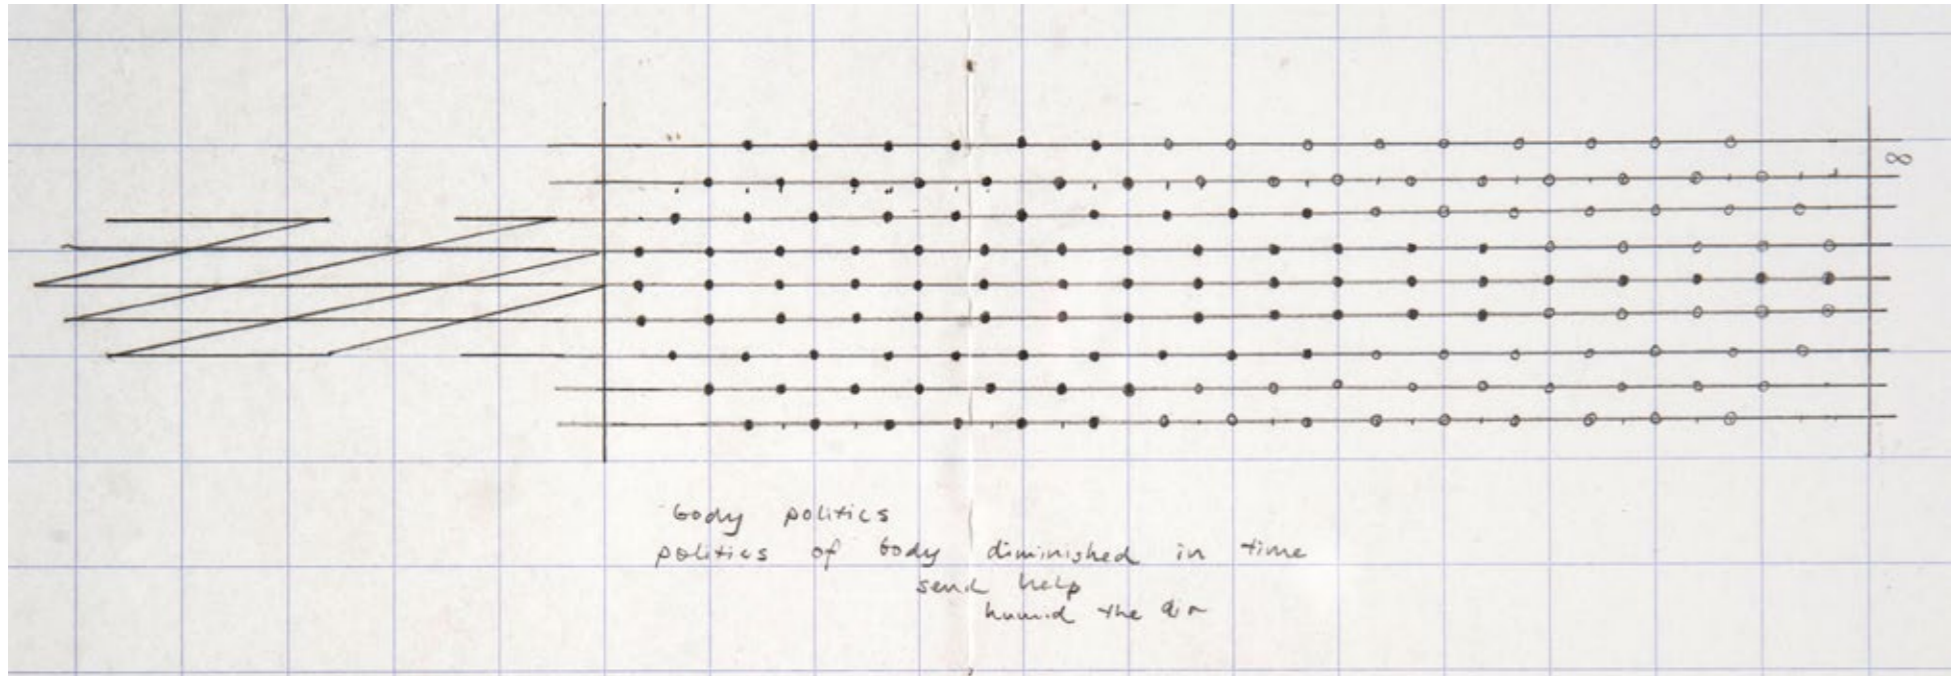 8
body politics
politics of body diminished in time
send help
humid the air